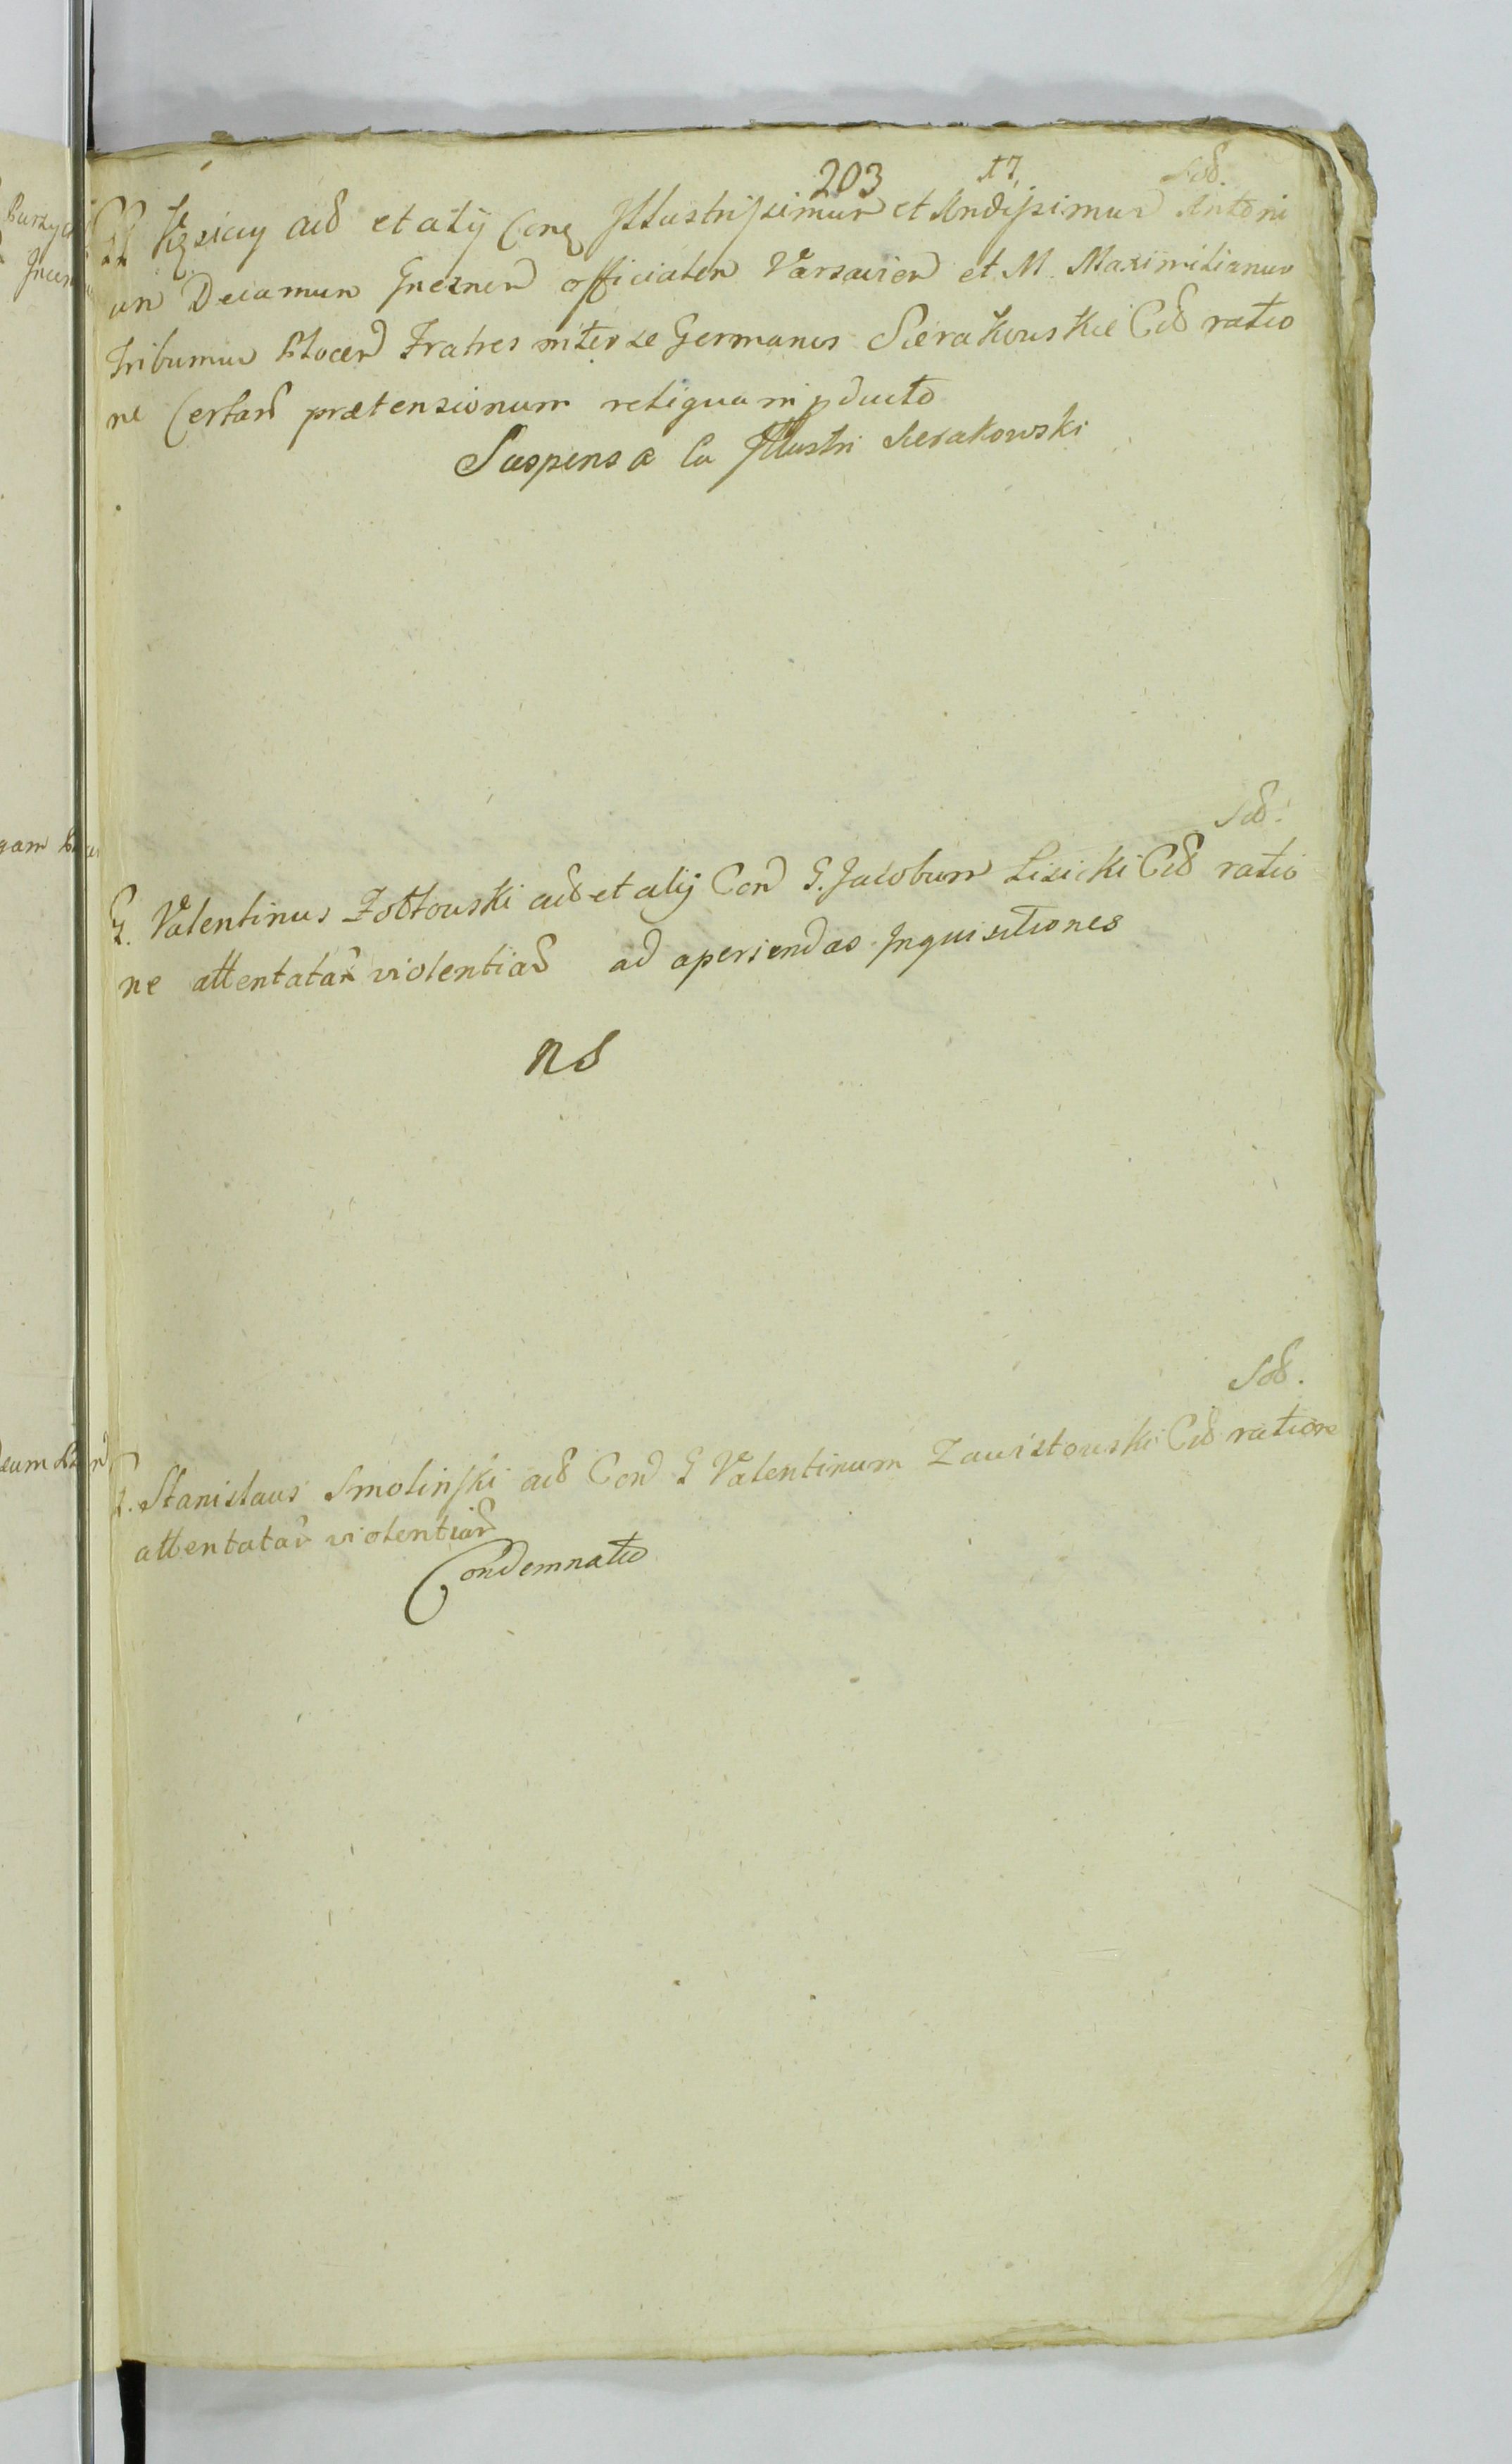 203 17
Sob.
GG Kęsicy aud et alij Cong Illustrissimum et Rndissimum Antoni
um Decanum Gneznen officialen Varsavien et M. Maximilianum
tribunum Plocen Fratres inter se Germanos Sierakowskie Citt ratio
ne Certar prætensionum reliquam pducto
Suspensa Ca Illustri Sierakowski
Sob.
G. Valentinus Zołtowski aud et alij Con G. Jacobum Lisicki Citt ratio
ne attentatar violentiar ad aperiendas Inquisitiones
NS
Sob.
G. Stanislaus Smolinski aud Con G Valentinum Zawistowski Citt ratione
attentatar violentiar
Condemnatio